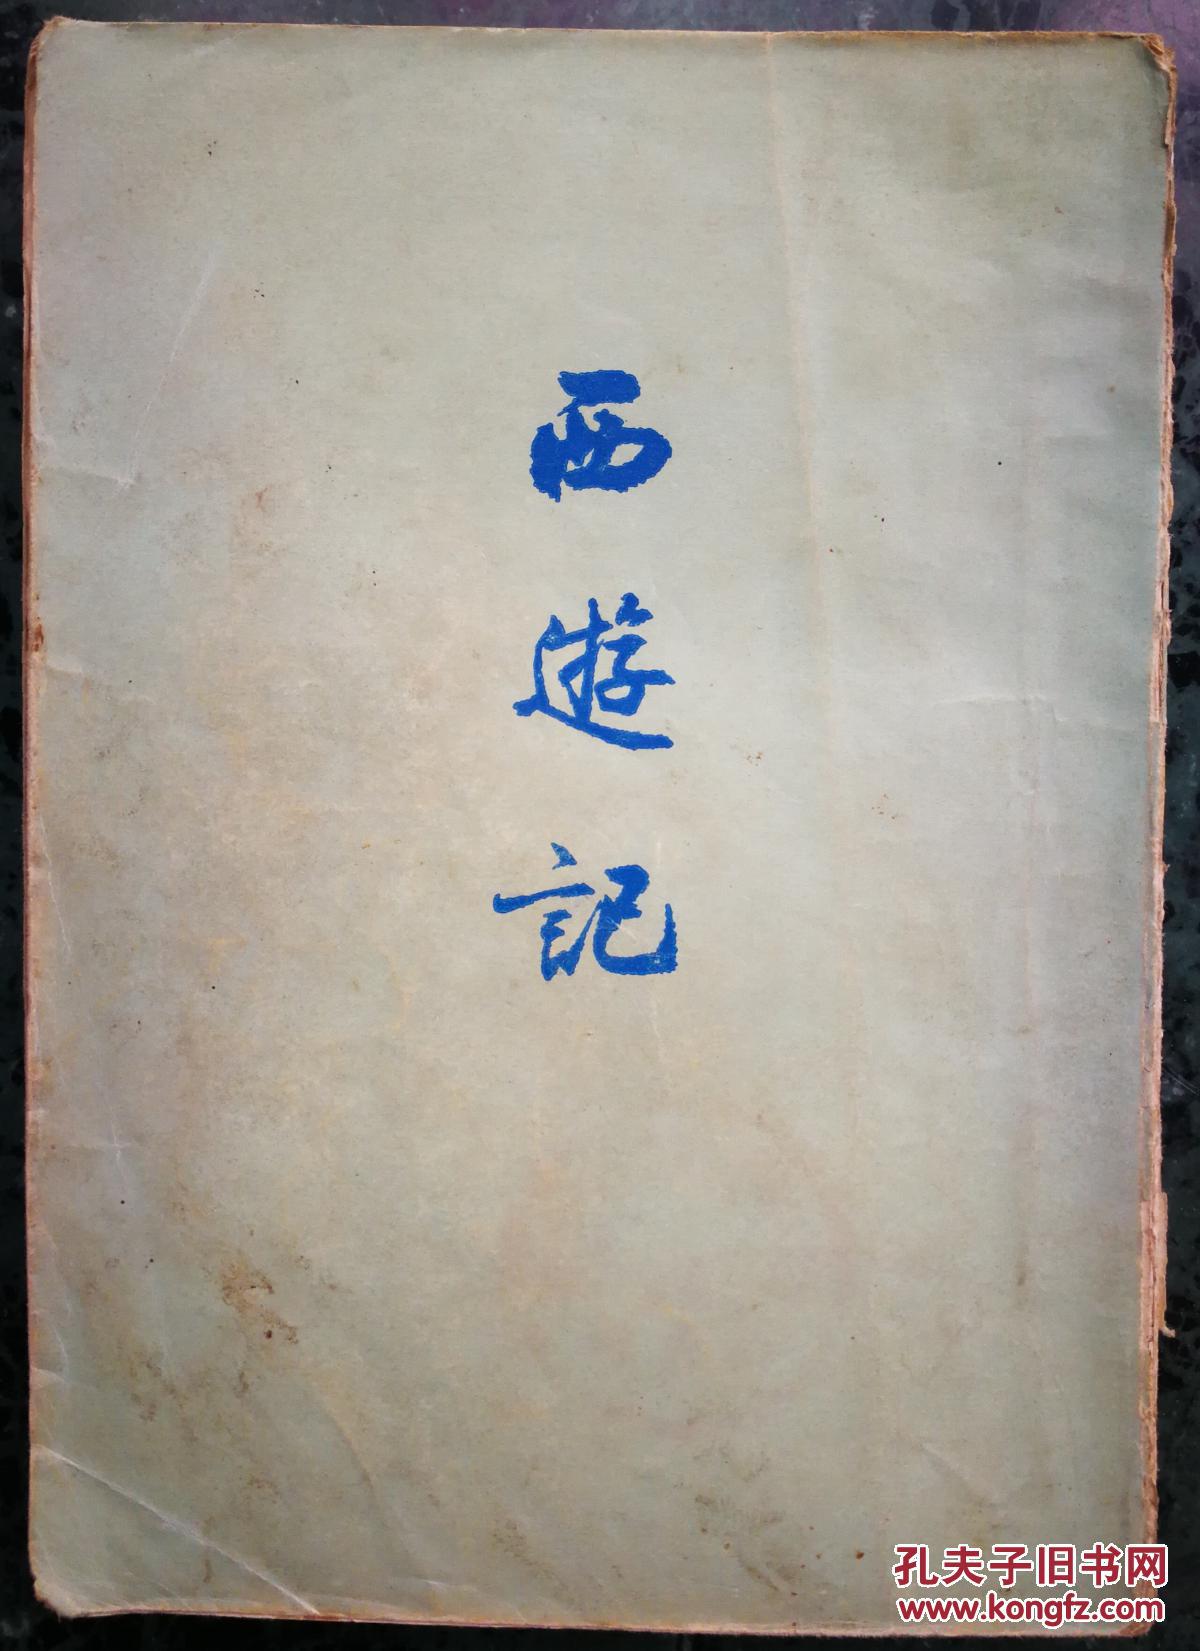 西
遊
記
孔夫子旧书网
www.kongfz.com